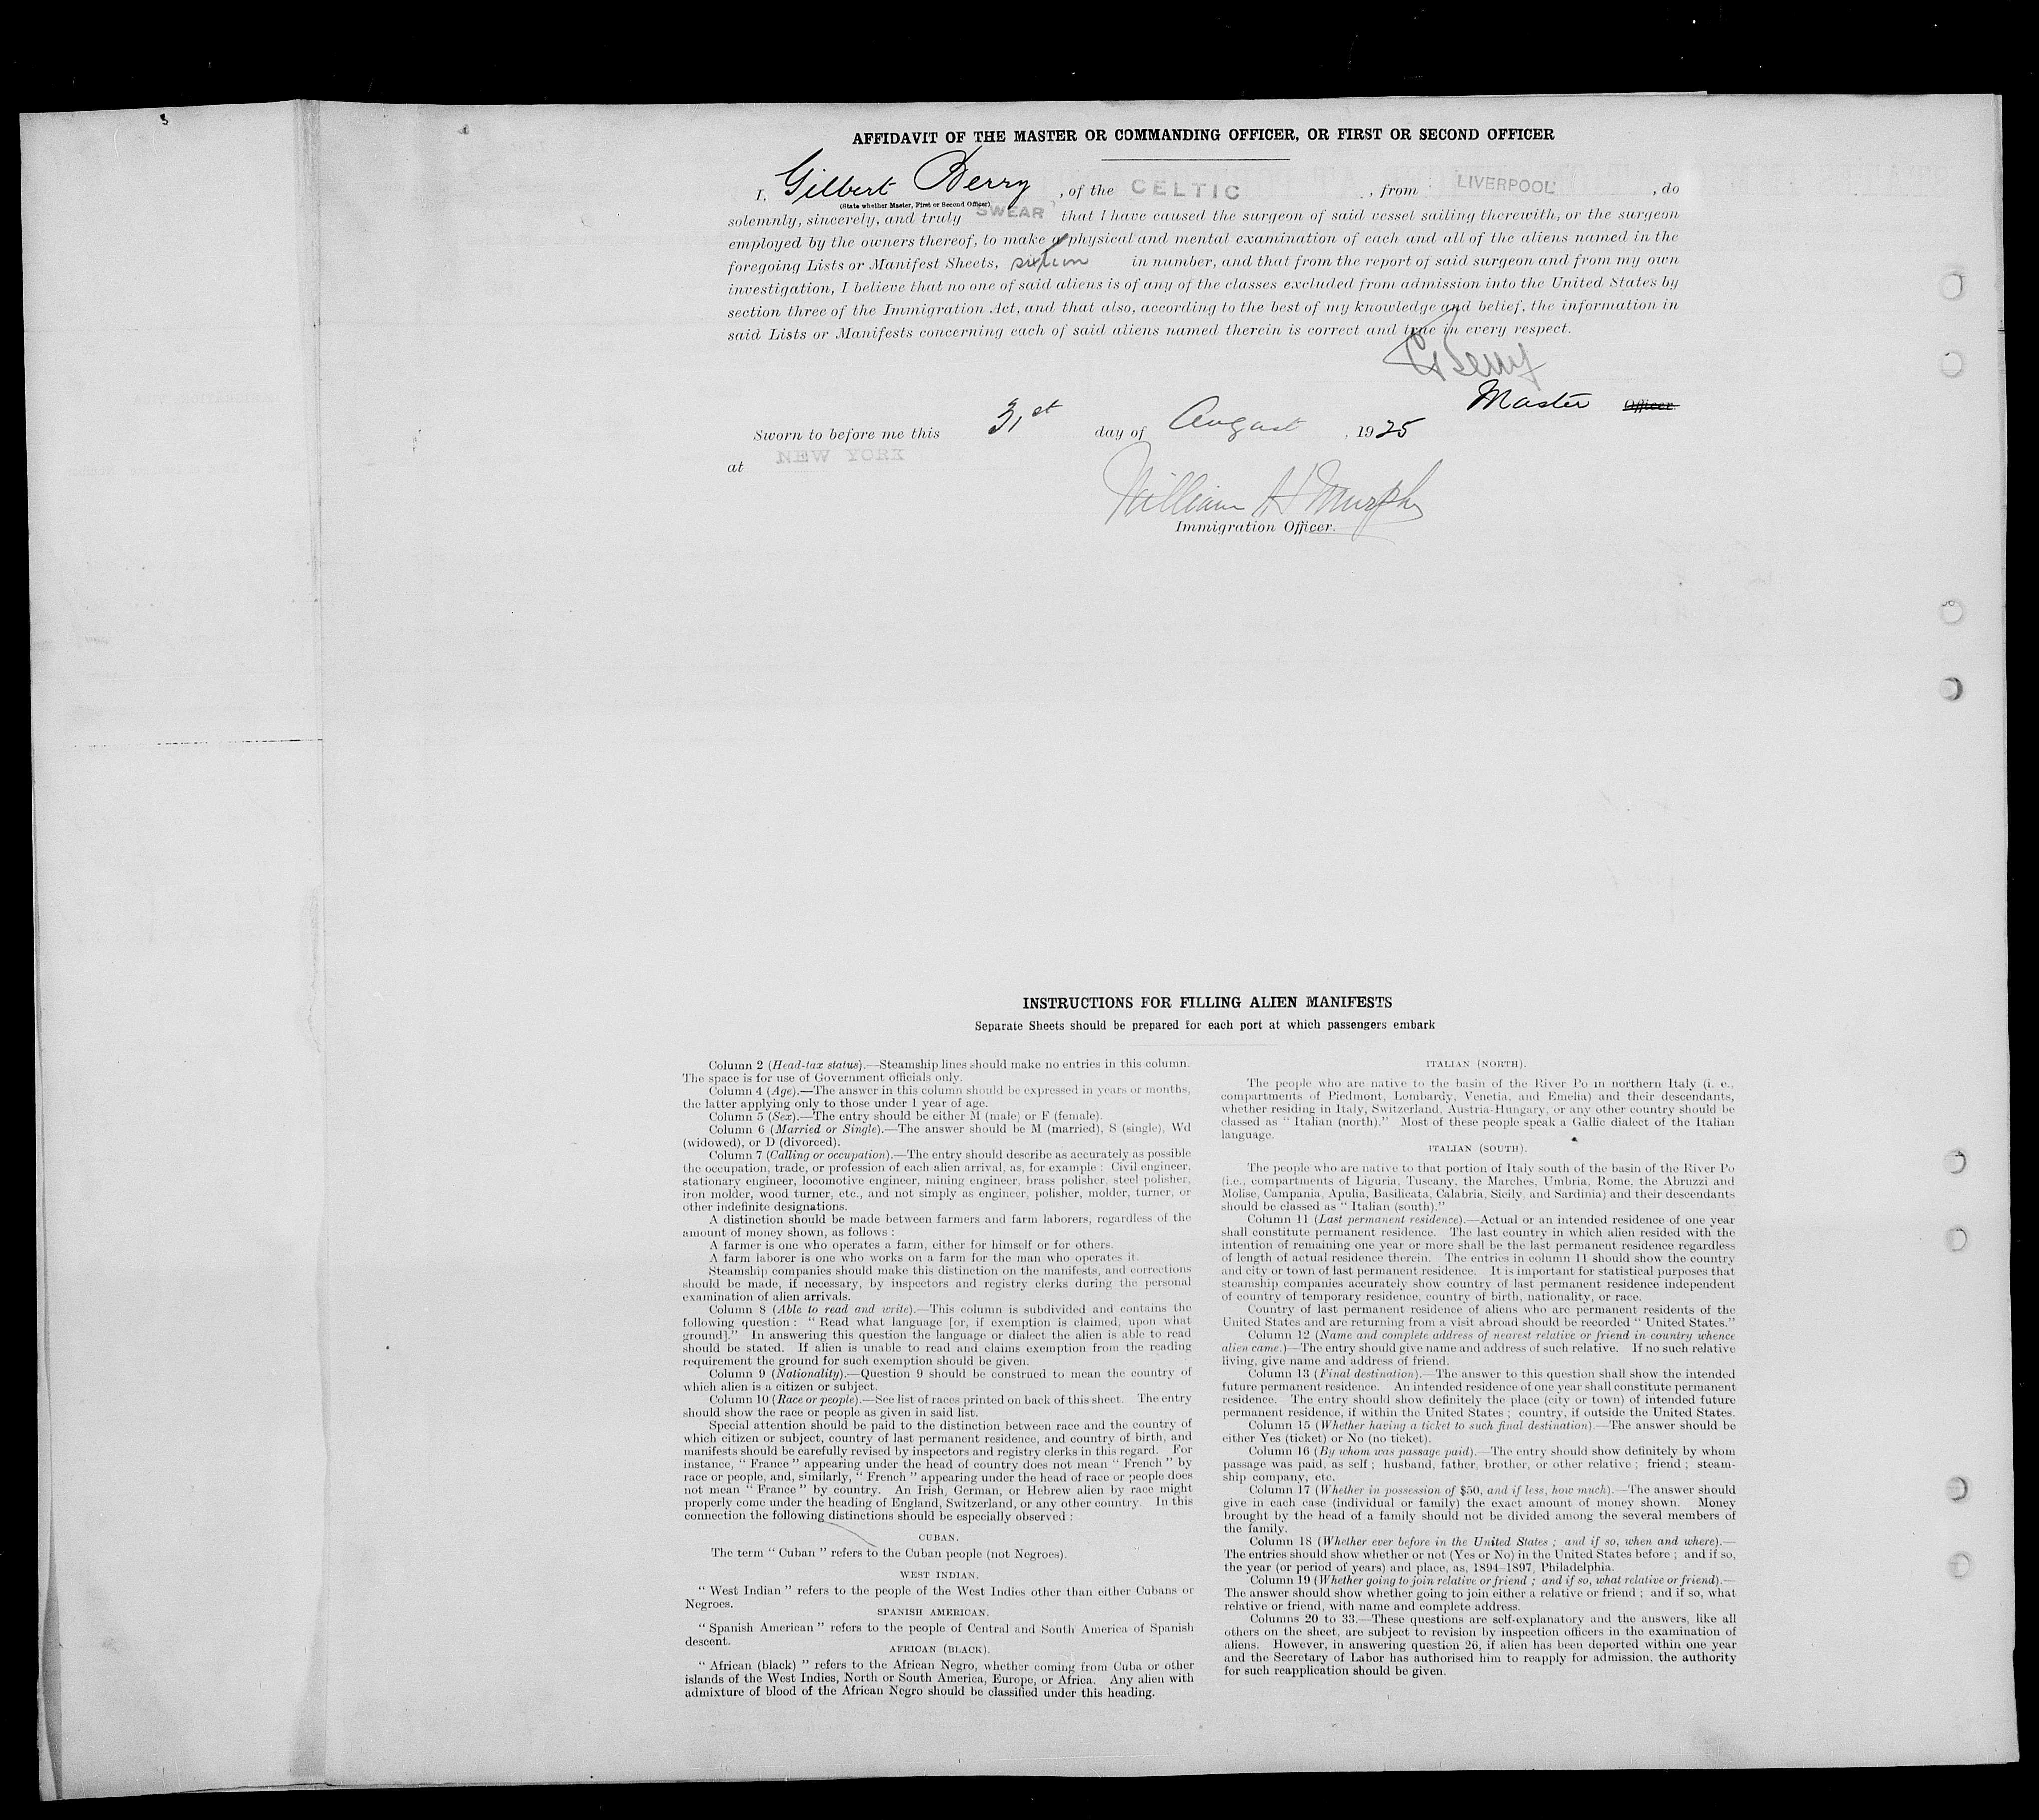 AFFIDAVIT OF THE MASTER OR COMMANDING OFFICER, OR FIRST OR SECOND OFFICER
I, Gilbert Berry, of the CELTIC, from LIVERPOOL, do
(State whether Master, First or Second Officer)
solemnly, sincerely, and truly SWEAR that I have caused the surgeon of said vessel sailing therewith, or the surgeon
employed by the owners thereof, to make a physical and mental examination of each and all of the aliens named in the
foregoing Lists or Manifest Sheets, sixteen in number, and that from the report of said surgeon and from my own
investigation, I believe that no one of said aliens is of any of the classes excluded from admission into the United States by
section three of the Immigration Act, and that also, according to the best of my knowledge and belief, the information in
said Lists or Manifests concerning each of said aliens named therein is correct and true in every respect.
G Berry
Master Officer.
Sworn to before me this 31st day of August, 1925
at NEW YORK
William H Murphy
Immigration Officer.
INSTRUCTIONS FOR FILLING ALIEN MANIFESTS
Separate Sheets should be prepared for each port at which passengers embark
Column 2 (Head-tax status).—Steamship lines should make no entries in this column.
The space is for use of Government officials only.
Column 4 (Age).—The answer in this column should be expressed in years or months,
the latter applying only to those under 1 year of age.
Column 5 (Sex).—The entry should be either M (male) or F (female).
Column 6 (Married or Single).—The answer should be M (married), S (single), Wd
(widowed), or D (divorced).
Column 7 (Calling or occupation).—The entry should describe as accurately as possible
the occupation, trade, or profession of each alien arrival, as, for example : Civil engineer,
stationary engineer, locomotive engineer, mining engineer, brass polisher, steel polisher,
iron molder, wood turner, etc., and not simply as engineer, polisher, molder, turner, or
other indefinite designations.
A distinction should be made between farmers and farm laborers, regardless of the
amount of money shown, as follows :
A farmer is one who operates a farm, either for himself or for others.
A farm laborer is one who works on a farm for the man who operates it.
Steamship companies should make this distinction on the manifests, and corrections
should be made, if necessary, by inspectors and registry clerks during the personal
examination of alien arrivals.
Column 8 (Able to read and write).—This column is subdivided and contains the
following question : “ Read what language [or, if exemption is claimed, upon what
ground].” In answering this question the language or dialect the alien is able to read
should be stated. If alien is unable to read and claims exemption from the reading
requirement the ground for such exemption should be given.
Column 9 (Nationality).—Question 9 should be construed to mean the country of
which alien is a citizen or subject.
Column 10 (Race or people).—See list of races printed on back of this sheet. The entry
should show the race or people as given in said list.
Special attention should be paid to the distinction between race and the country of
which citizen or subject, country of last permanent residence, and country of birth, and
manifests should be carefully revised by inspectors and registry clerks in this regard. For
instance, “ France ” appearing under the head of country does not mean “ French ” by
race or people, and, similarly, “ French ” appearing under the head of race or people does
not mean “ France ” by country. An Irish, German, or Hebrew alien by race might
properly come under the heading of England, Switzerland, or any other country. In this
connection the following distinctions should be especially observed :
CUBAN.
The term “ Cuban ” refers to the Cuban people (not Negroes).
WEST INDIAN.
“ West Indian ” refers to the people of the West Indies other than either Cubans or
Negroes.
SPANISH AMERICAN.
“ Spanish American ” refers to the people of Central and South America of Spanish
descent.
AFRICAN (BLACK).
“ African (black) ” refers to the African Negro, whether coming from Cuba or other
islands of the West Indies, North or South America, Europe, or Africa. Any alien with
admixture of blood of the African Negro should be classified under this heading.
ITALIAN (NORTH).
The people who are native to the basin of the River Po in northern Italy (i. e.,
compartments of Piedmont, Lombardy, Venetia, and Emelia) and their descendants,
whether residing in Italy, Switzerland, Austria-Hungary, or any other country should be
classed as “ Italian (north).” Most of these people speak a Gallic dialect of the Italian
language.
ITALIAN (SOUTH).
The people who are native to that portion of Italy south of the basin of the River Po
(i.e., compartments of Liguria, Tuscany, the Marches, Umbria, Rome, the Abruzzi and
Molise, Campania, Apulia, Basilicata, Calabria, Sicily, and Sardinia) and their descendants
should be classed as “ Italian (south).”
Column 11 (Last permanent residence).—Actual or an intended residence of one year
shall constitute permanent residence. The last country in which alien resided with the
intention of remaining one year or more shall be the last permanent residence regardless
of length of actual residence therein. The entries in column 11 should show the country
and city or town of last permanent residence. It is important for statistical purposes that
steamship companies accurately show country of last permanent residence independent
of country of temporary residence, country of birth, nationality, or race.
Country of last permanent residence of aliens who are permanent residents of the
United States and are returning from a visit abroad should be recorded “ United States.”
Column 12 (Name and complete address of nearest relative or friend in country whence
alien came.)—The entry should give name and address of such relative. If no such relative
living, give name and address of friend.
Column 13 (Final destination).—The answer to this question shall show the intended
future permanent residence. An intended residence of one year shall constitute permanent
residence. The entry should show definitely the place (city or town) of intended future
permanent residence, if within the United States ; country, if outside the United States.
Column 15 (Whether having a ticket to such final destination).—The answer should be
either Yes (ticket) or No (no ticket).
Column 16 (By whom was passage paid).—The entry should show definitely by whom
passage was paid, as self ; husband, father, brother, or other relative ; friend ; steam-
ship company, etc.
Column 17 (Whether in possession of $50, and if less, how much).—The answer should
give in each case (individual or family) the exact amount of money shown. Money
brought by the head of a family should not be divided among the several members of
the family.
Column 18 (Whether ever before in the United States ; and if so, when and where).—
The entries should show whether or not (Yes or No) in the United States before ; and if so,
the year (or period of years) and place, as, 1894-1897, Philadelphia.
Column 19 (Whether going to join relative or friend ; and if so, what relative or friend).—
The answer should show whether going to join either a relative or friend ; and if so, what
relative or friend, with name and complete address.
Columns 20 to 33.—These questions are self-explanatory and the answers, like all
others on the sheet, are subject to revision by inspection officers in the examination of
aliens. However, in answering question 26, if alien has been deported within one year
and the Secretary of Labor has authorised him to reapply for admission, the authority
for such reapplication should be given.